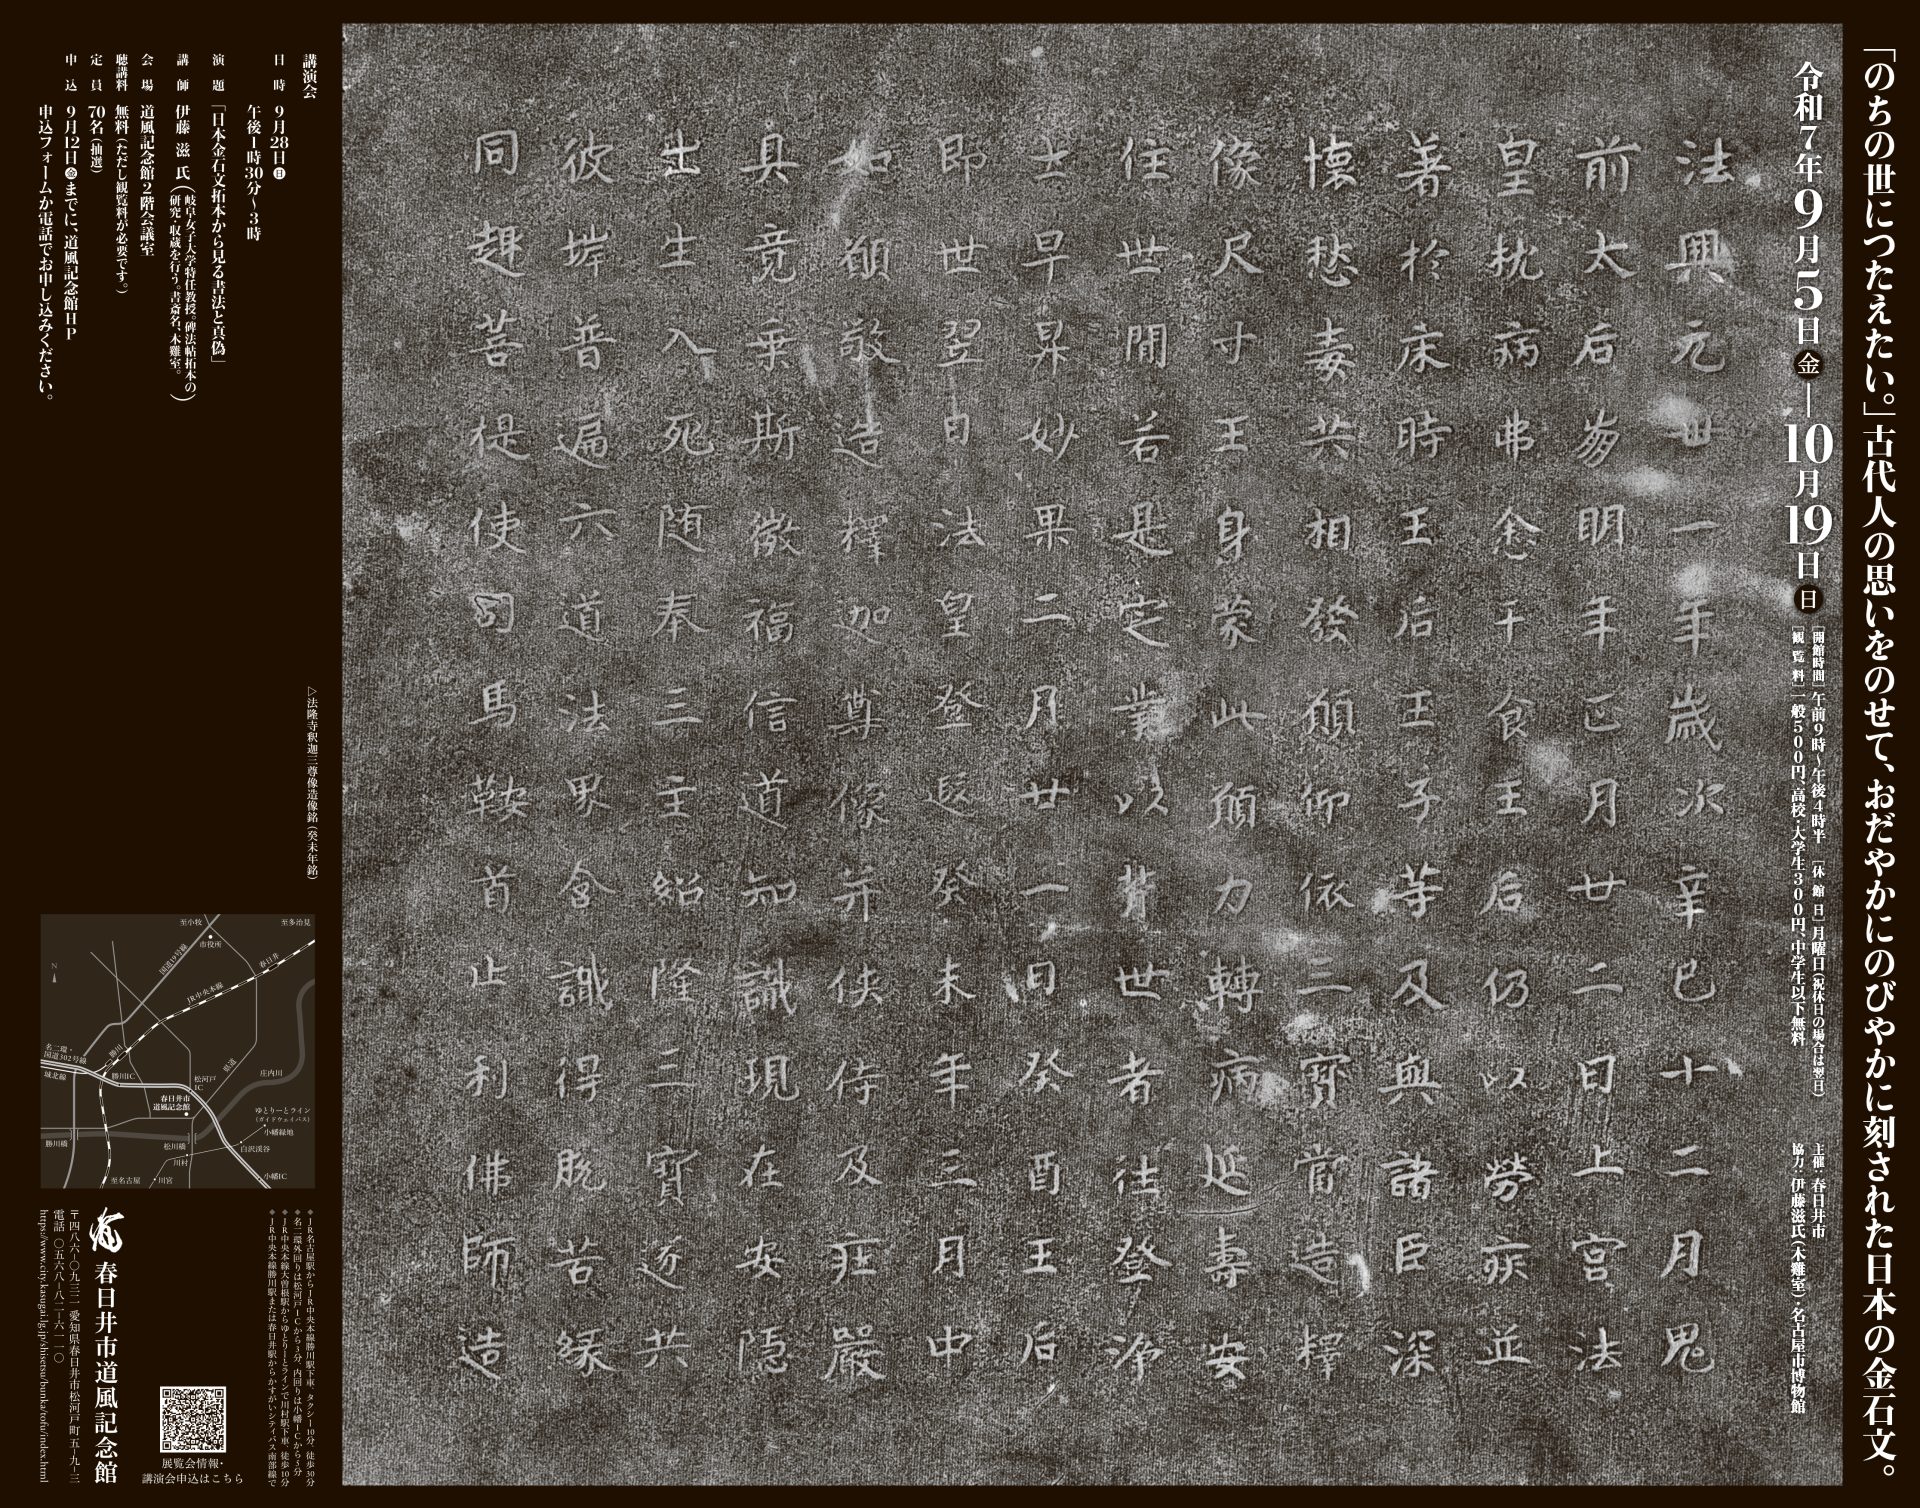 「のちの世につたえたい。」古代人の思いをのせて、おだやかにのびやかに刻された日本の金石文。
令和7年9月5日㊎—10月19日㊐
［開館時間］午前9時～午後4時半 ［休館日］月曜日（祝休日の場合は翌日）
［観覧料］一般500円、高校・大学生300円、中学生以下無料
主催：春日井市
協力：伊藤滋氏（木雞室）・名古屋市博物館
法興元丗一年歳次辛巳十二月鬼
前太后崩明年正月廿二日上宮法
皇枕病弗悆干食王后仍以勞疾並
著於床時王后王子等及與諸臣深
懐愁毒共相發願仰依三寳當造釋
像尺寸王身蒙此願力轉病延壽安
住世間若是定業以背世者往登浄
土早昇妙果二月廿一日癸酉王后
即世翌日法皇登遐癸未年三月中
如願敬造釋迦尊像并侠侍及荘嚴
具竟乗斯微福信道知識現在安隠
出生入死随奉三主紹隆三寳遂共
彼岸普遍六道法界含識得脱苦縁
同趣菩提使司馬鞍首止利佛師造
講演会
日時 9月28日㊐
午後1時30分～3時
演題 「日本金石文拓本から見る書法と真偽」
講師 伊藤 滋 氏（岐阜女子大学特任教授。碑法帖拓本の
研究・収蔵を行う。書斎名、木雞室。）
会場 道風記念館2階会議室
聴講料 無料（ただし観覧料が必要です。）
定員 70名（抽選）
申込 9月12日㊎までに、道風記念館HP
申込フォームか電話でお申し込みください。
△法隆寺釈迦三尊像造像銘（癸未年銘）
至小牧
至多治見
市役所
国道19号線
春日井
N
JR中央本線
名二環・
国道302号線
勝川
城北線
勝川IC
松河戸
IC
県道
庄内川
春日井市
道風記念館
ゆとりーとライン
（ガイドウェイバス）
小幡緑地
勝川橋
松川橋
白沢渓谷
川村
小幡IC
至名古屋
川宮
◆JR名古屋駅からJR中央本線勝川駅下車、タクシー10分、徒歩30分
◆名二環外回りは松河戸ICから3分、内回りは小幡ICから5分
◆JR中央本線大曽根駅からゆとりーとラインで川村駅下車、徒歩10分
◆JR中央本線勝川駅または春日井駅からかすがいシティバス南部線で
展覧会情報・
講演会申込はこちら
春日井市道風記念館
〒四八六-〇九三二 愛知県春日井市松河戸町五-九-三
電話 〇五六八-八二-六一一〇
https://www.city.kasugai.lg.jp/shisetsu/bunka/tofu/index.html